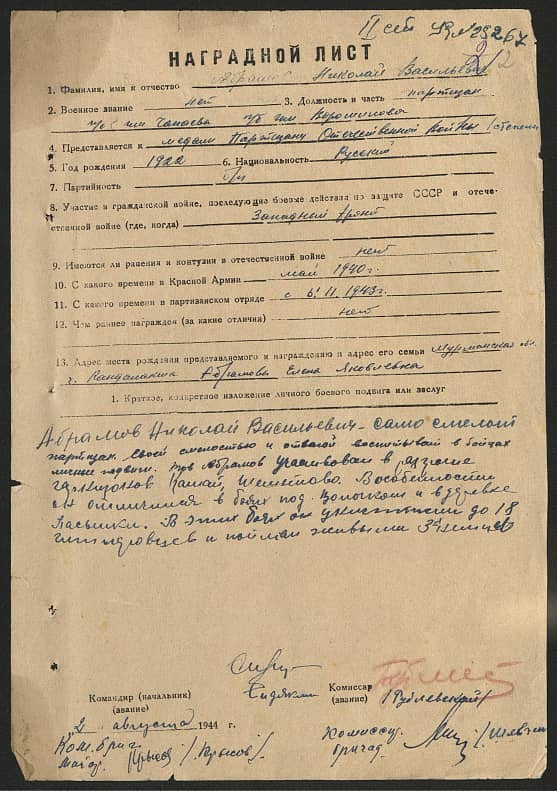 II
НАГРАДНОЙ ЛИСТ
1. Фамилия, имя и отчество Абрамов Николай Васильевич
2. Военное звание нет 3. Должность и часть партизан
им Чапаева им Ворошилова
4. Представляется к медали Партизану Отечественной Войны I степени
5. Год рождения 1922 6. Национальность Русский
7. Партийность б/п
8. Участие в гражданской войне, последующие боевые действия по защите СССР и отече-
ственной войне (где, когда) Западный фронт
9. Имеются ли ранения и контузии в отечественной войне нет
10. С какого времени в Красной Армии май 1940 г.
11. С какого времени в партизанском отряде с 6.11.1943 г.
12. Чем раннее награжден (за какие отличия) нет
13. Адрес места рождения представляемого к награждению и адрес его семьи Мурманская обл.
г. Кандалакша Абрамова Елена Яковлевна
1. Краткое, конкретное изложение личного боевого подвига или заслуг
Абрамов Николай Васильевич - само смелый
партизан. Своей смелостью и отвагой воспитывал в бойцах
Абрамов участвовал в
гарнизонов
он отличился в боях под и в деревне
В этих боях он уничтожил до 18
гитлеровцев и поймал живыми 3х немцев
Командир (начальник)
(звание)
Комиссар
(звание) /Рублевский/
"2" августа 1944 г.
Ком. бриг.
майор /Крысов/
Комиссар
бригад.